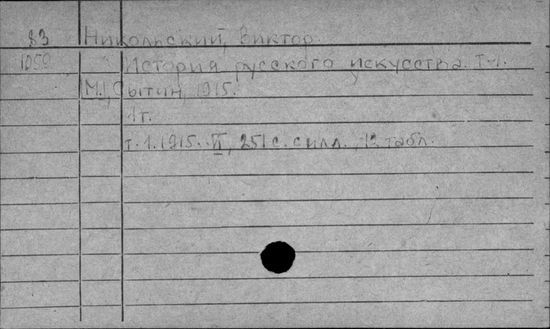 83 Никольский, Виктор.
1050 История русского искусства. Т-1.
М., Сытин, 1915.
1 т.
т. 1. 1915. II, 251 с. с илл., 12 табл.